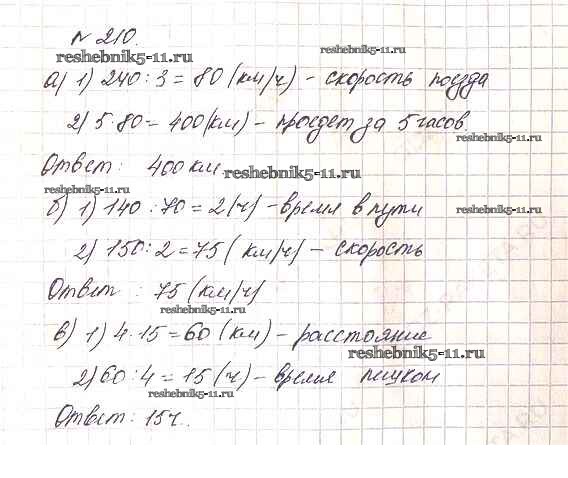 № 210.
reshebnik5-11.ru
reshebnik5-11.ru
а) 1) 240 : 3 = 80 (км/ч) - скорость поезда
2) 5·80 = 400 (км) - проедет за 5 часов.
reshebnik5-11.ru
reshebnik5-11.ru
Ответ: 400 км
reshebnik5-11.ru
reshebnik5-11.ru
б) 1) 140 : 70 = 2 (ч) - время в пути
reshebnik5-11.ru
2) 150 : 2 = 75 (км/ч) - скорость
Ответ : 75 (км/ч)
reshebnik5-11.ru
в) 1) 4·15 = 60 (км) - расстояние
reshebnik5-11.ru
2) 60 : 4 = 15 (ч) - время пешком
reshebnik5-11.ru
Ответ: 15 ч.